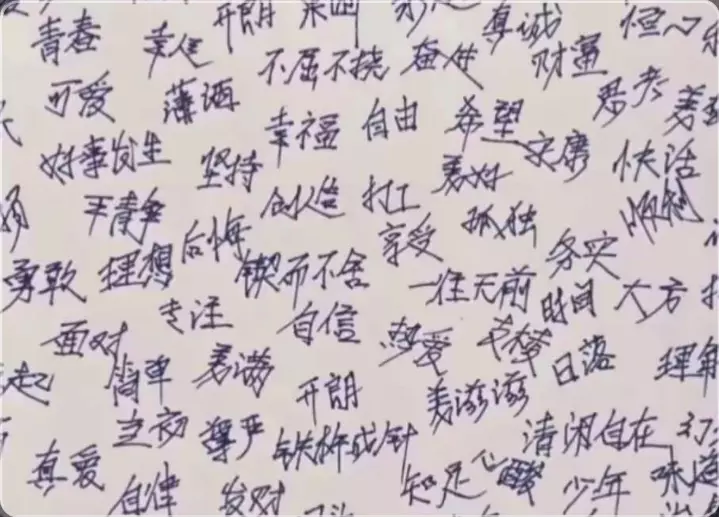 开朗
真诚
恒心
青春
幸运
不屈不挠
奋进
财富
可爱
潇洒
思考
幸福
自由
希望
安康
好事发生
坚持
美好
快活
平静
创造
打工
孤独
顺利
后悔
享受
务实
勇敢
理想
锲而不舍
一往无前
时间
大方
专注
自信
面对
热爱
日落
简单
美满
开朗
美滋滋
理解
起
尊严
铁杵成针
清闲自在
真爱
自律
知足
心酸
少年
味道